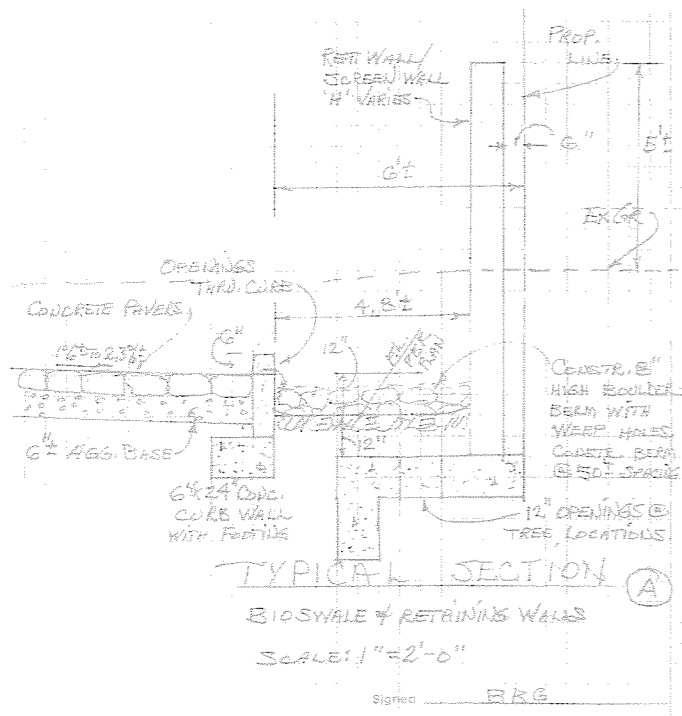 PROP.
LINE
RET'T WALL/
SCREEN WALL
'H' VARIES
6"
5'±
6'±
EXGR
OPENINGS
THRU. CURB
CONCRETE PAVERS
4.8'±
6"
12"
CONSTR. 8"
HIGH BOULDER
BERM WITH
WEEP HOLES
CONSTR. BERM
@ 50'± SPACING
12"
6"± AGG. BASE
6"X24" CONC.
CURB WALL
WITH FOOTING
12" OPENINGS @
TREE LOCATIONS
TYPICAL SECTION
A
BIOSWALE & RETAINING WALLS
SCALE: 1"=2'-0"
Signed BRG